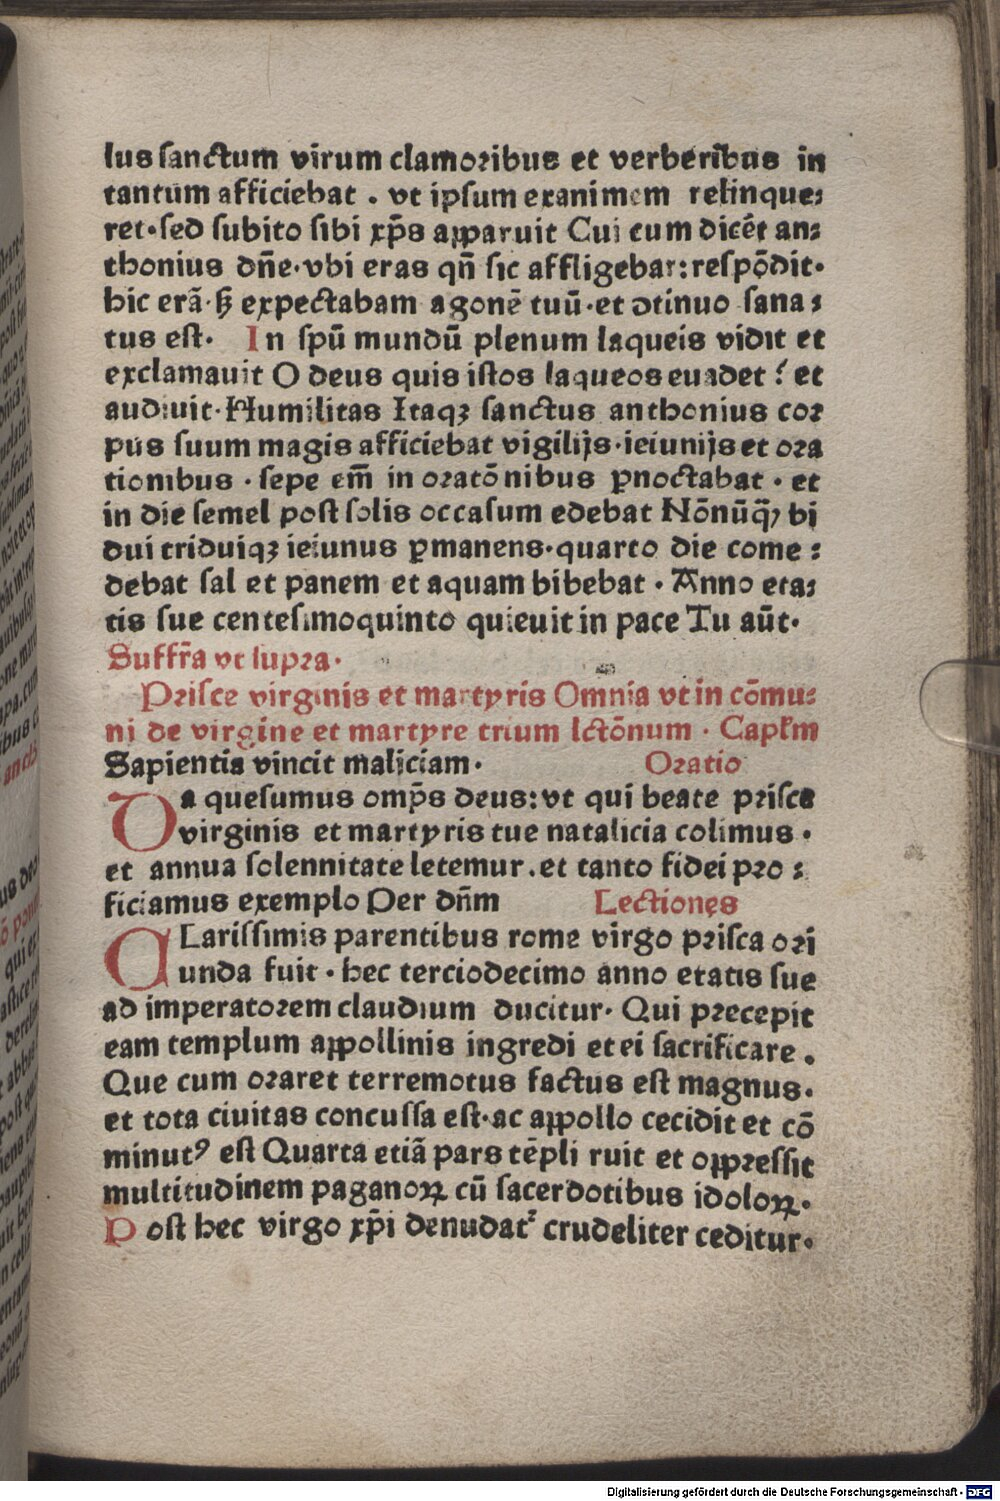 lus sanctum virum clamoribus et verberibus in
tantum afficiebat . vt ipsum exanimem relinque⸗
ret·sed subito sibi xp̄s apparuit Cui cum dicēt an⸗
thonius dn̄e·vbi eras qn̄ sic affligebar:respōdit·
hic erā·sꝫ expectabam agonē tuū·et ↄtinuo sana⸗
tus est· In spū mundū plenum laqueis vidit et
exclamauit O deus quis istos laqueos euadet ? et
audiuit·Humilitas Itaqꝫ sanctus anthonius cor
pus suum magis afficiebat vigilijs·ieiunijs et ora
tionibus · sepe em̄ in oratōnibus ꝑnoctabat · et
in die semel post solis occasum edebat Nōnūqꝫ̄ bi
dui triduiqꝫ ieiunus ꝑmanens·quarto die come⸗
debat sal et panem et aquam bibebat · Anno eta⸗
tis sue centesimoquinto quieuit in pace Tu aūt·
Suffr̄a vt supra·
Prisce virginis et martyris Omnia vt in cōmu⸗
ni de virgine et martyre trium lctōnum · Capl̄m
Sapientia vincit maliciam· Oratio
Da quesumus omp̄s deus:vt qui beate prisce
virginis et martyris tue natalicia colimus ·
et annua solennitate letemur . et tanto fidei pro⸗
ficiamus exemplo Per dn̄m Lectiones
CLarissimis parentibus rome virgo prisca ori
unda fuit · hec terciodecimo anno etatis sue
ad imperatorem claudium ducitur· Qui precepit
eam templum appollinis ingredi et ei sacrificare .
Que cum oraret terremotus factus est magnus·
et tota ciuitas concussa est·ac appollo cecidit et cō
minutꝰ est Quarta etiā pars tēpli ruit et oppressit
multitudinem paganoꝝ cū sacerdotibus idoloꝝ·
Post hec virgo xp̄i denudat᷑ crudeliter ceditur·
Digitalisierung gefördert durch die Deutsche Forschungsgemeinschaft - DFG